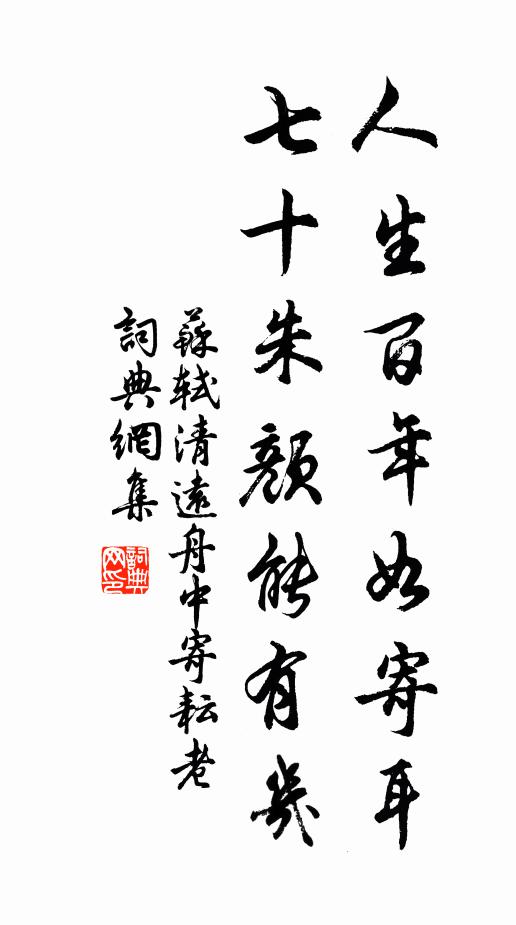 人生百年如寄耳
七十朱顏能有幾
蘇軾清遠舟中寄耘老
詞典網集
詞典網印